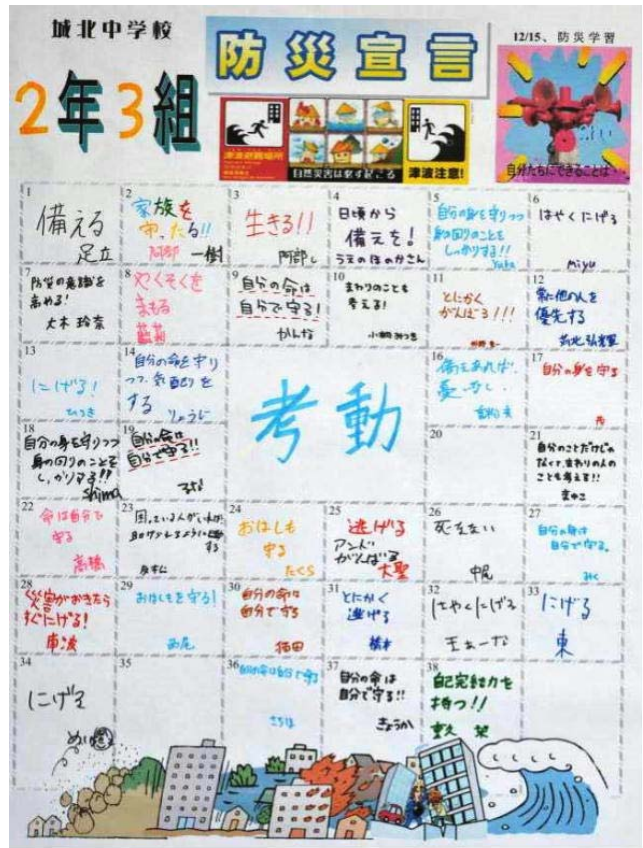 城北中学校
防災宣言
12/15、防災学習
2年3組
津波避難場所
自然災害は必ず起こる
津波注意!
自分たちにできることは…
1
備える
足立
2
家族を
守
一樹
3
生きる!!
阿部し
4
日頃から
備えを!
うえのほのかさん
5
自分の身を守りつつ
身の回りのことを
しっかりする!!
Yuka
6
はやくにげる
miyu
7
防災の意識を
高める!
大木 玲奈
8
やくそくを
まもる
9
自分の命は
自分で守る!
かんな
10
まわりのことも
考える!
11
とにかく
がんばる!!!
12
常に他の人を
優先する
13
にげる!
14
自分の命を守り
つつ、気配りを
する
りょうじ
考動
16
備えあれば
憂いなし
17
自分の身を守る
18
自分の身を守りつつ
身の回りのことを
しっかりする!!
Shima
19
自分の命は
自分で守る!!
20
21
自分のことだけじゃ
なくて、まわりの人の
ことも考える!!
まゆこ
22
命は自分で
守る
高橋
23
困っている人がいれば
助けてあげるようにする
24
おはしも
守る
たくら
25
逃げる
アンド
がんばる
大聖
26
死なない
中尾
27
自分の身は
自分で守る。
みく
28
災害がおきたら
すぐにげる!
29
おはしもを守る!
西尾
30
自分の命は
自分で守る
31
とにかく
逃げる
橋本
32
はやくにげる
33
にげる
東
34
にげる
35
36
自分の命は自分で守る
37
自分の命は
自分で守る!!
きょうか
38
自己完結力を
持つ!!